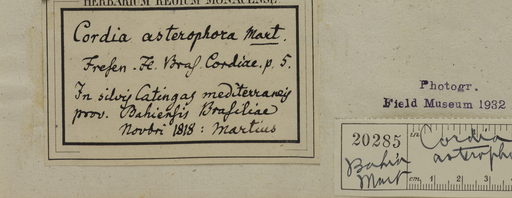 HERBARIUM REGIUM MONACENSE
Cordia asterophora Mart.
Fresen. Fl. Bras. Cordiae. p. 5.
In silvis Catingas mediterraneis
prov. Bahiensis Brasiliae
Novbri 1818: Martius
Photogr.
Field Museum 1932
20285
Bahia
Mart
in.
Cordia
asteropho
cm. 1 2 3